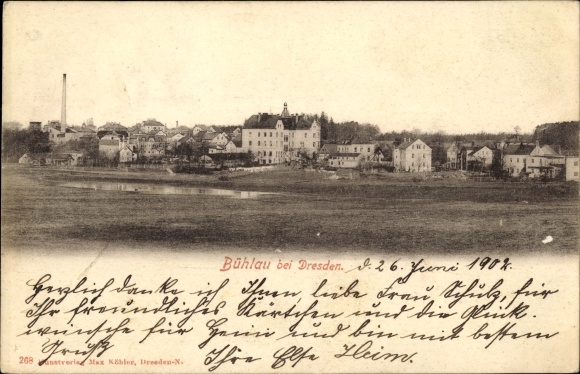 Bühlau bei Dresden. d. 26. Juni 1902.
Herzlich danke ich Ihnen, liebe Frau Schulz, für
Ihr freundliches Kärtchen und die Glück-
wünsche für Heini und bin mit bestem
Gruß Ihre Else Heim.
268 Kunstverlag Max Köhler, Dresden-N.